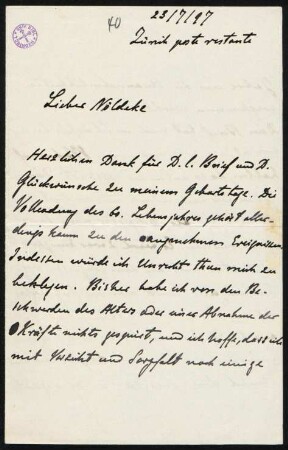 40
23/7/97
Zürich poste restante
Lieber Nöldeke
Herzlichen Dank für D. l. Brief und D.
Glückwünsche zu meinem Geburtstage. Die
Vollendung des 60. Lebensjahres gehört aller-
dings kaum zu den angenehmen Ereignissen.
Indessen würde ich Unrecht thun mich zu
beklagen. Bisher habe ich von den Be-
schwerden des Alters oder einer Abnahme der
Kräfte nichts gespürt, und ich hoffe, dass ich
mit Vorsicht und Sorgfalt noch einige